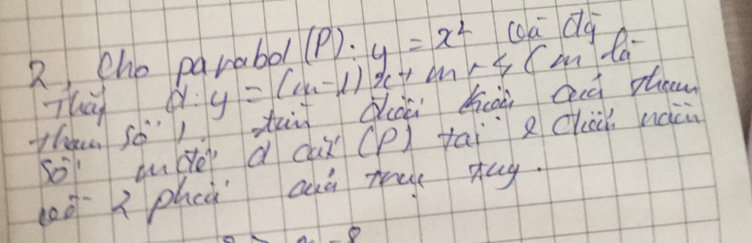 2, Cho parabol (P): y = x² và đg
thẳg d: y = (m-1)x + m + 4 (m là
tham số). tìm điều kiện của tham
số m để d cắt (P) tại 2 điểm nằm
về 2 phía của trục tug.